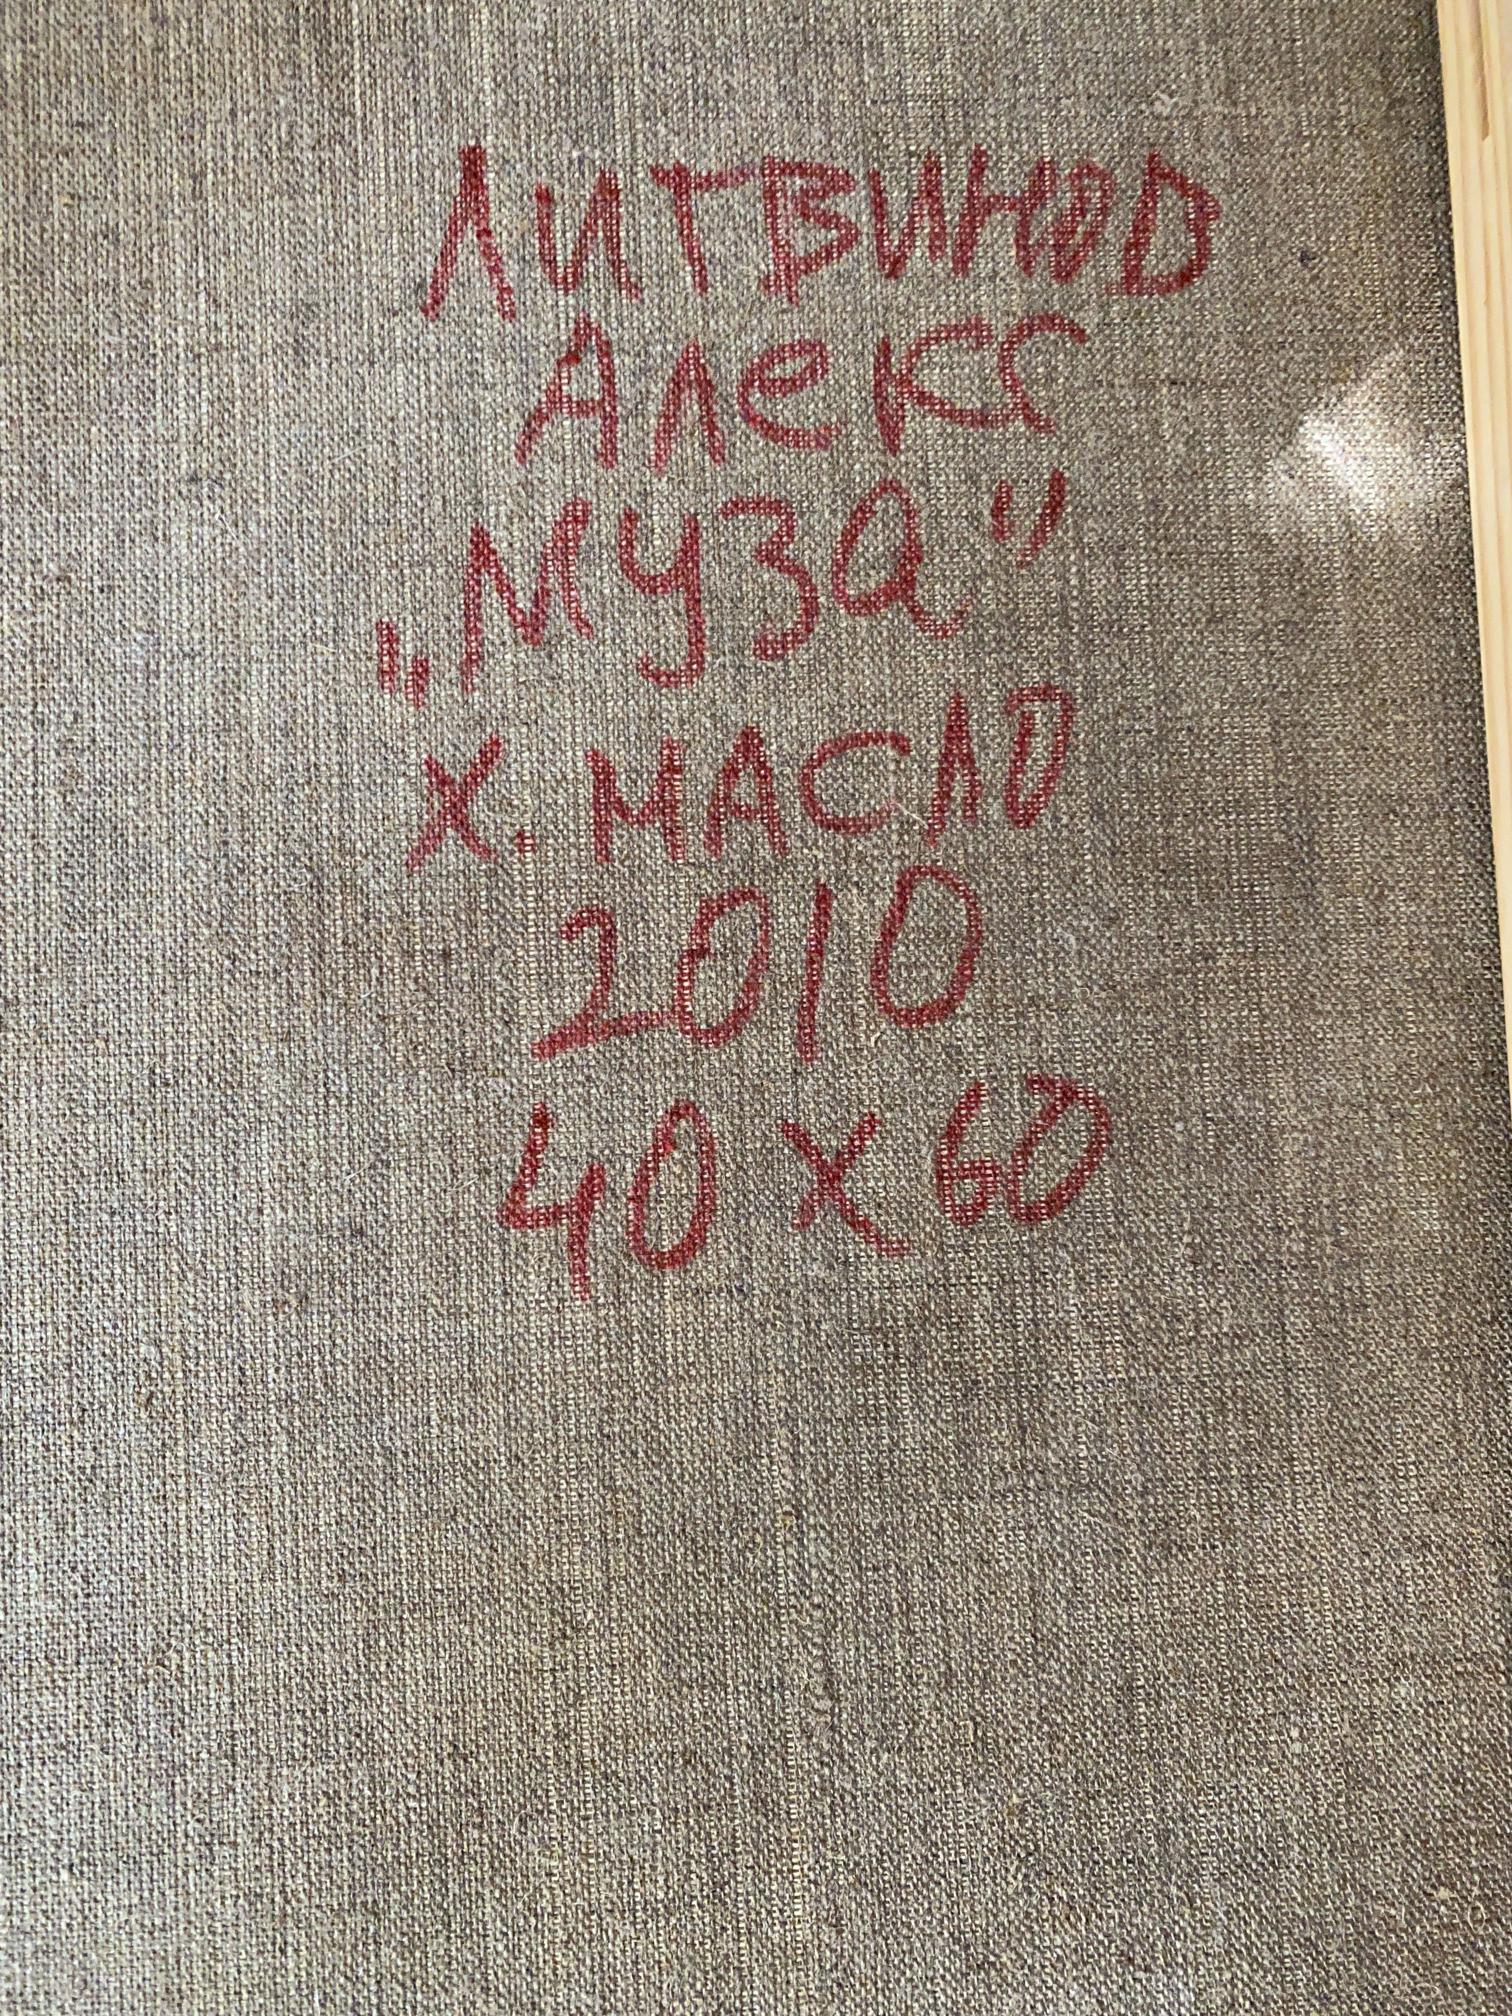 Литвинов
Алекс
„Муза"
х. масло
2010
40 х 60